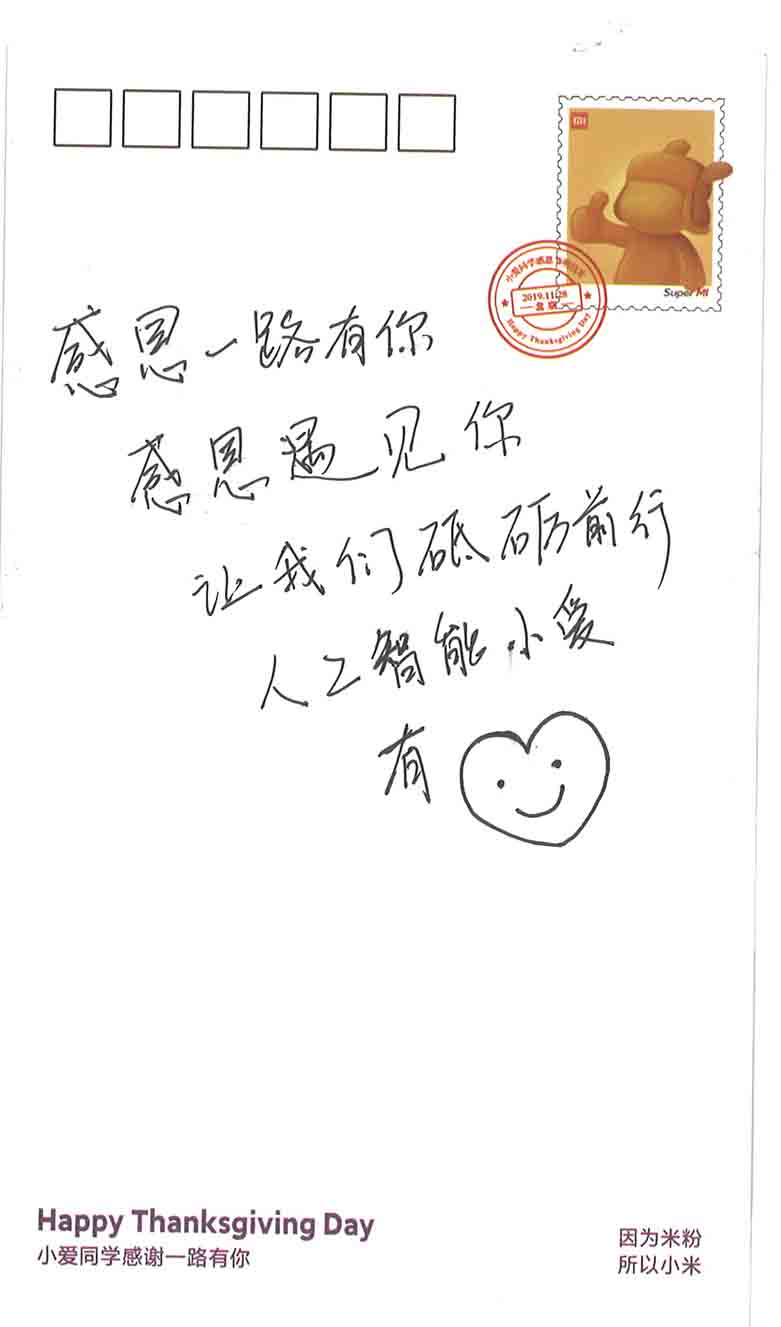 MI
Super MI
小爱同学感恩
2019.11.28
北京
Happy Thanksgiving Day
感恩一路有你
感恩遇见你
让我们砥砺前行
人工智能小爱
有
Happy Thanksgiving Day
小爱同学感谢一路有你
因为米粉
所以小米